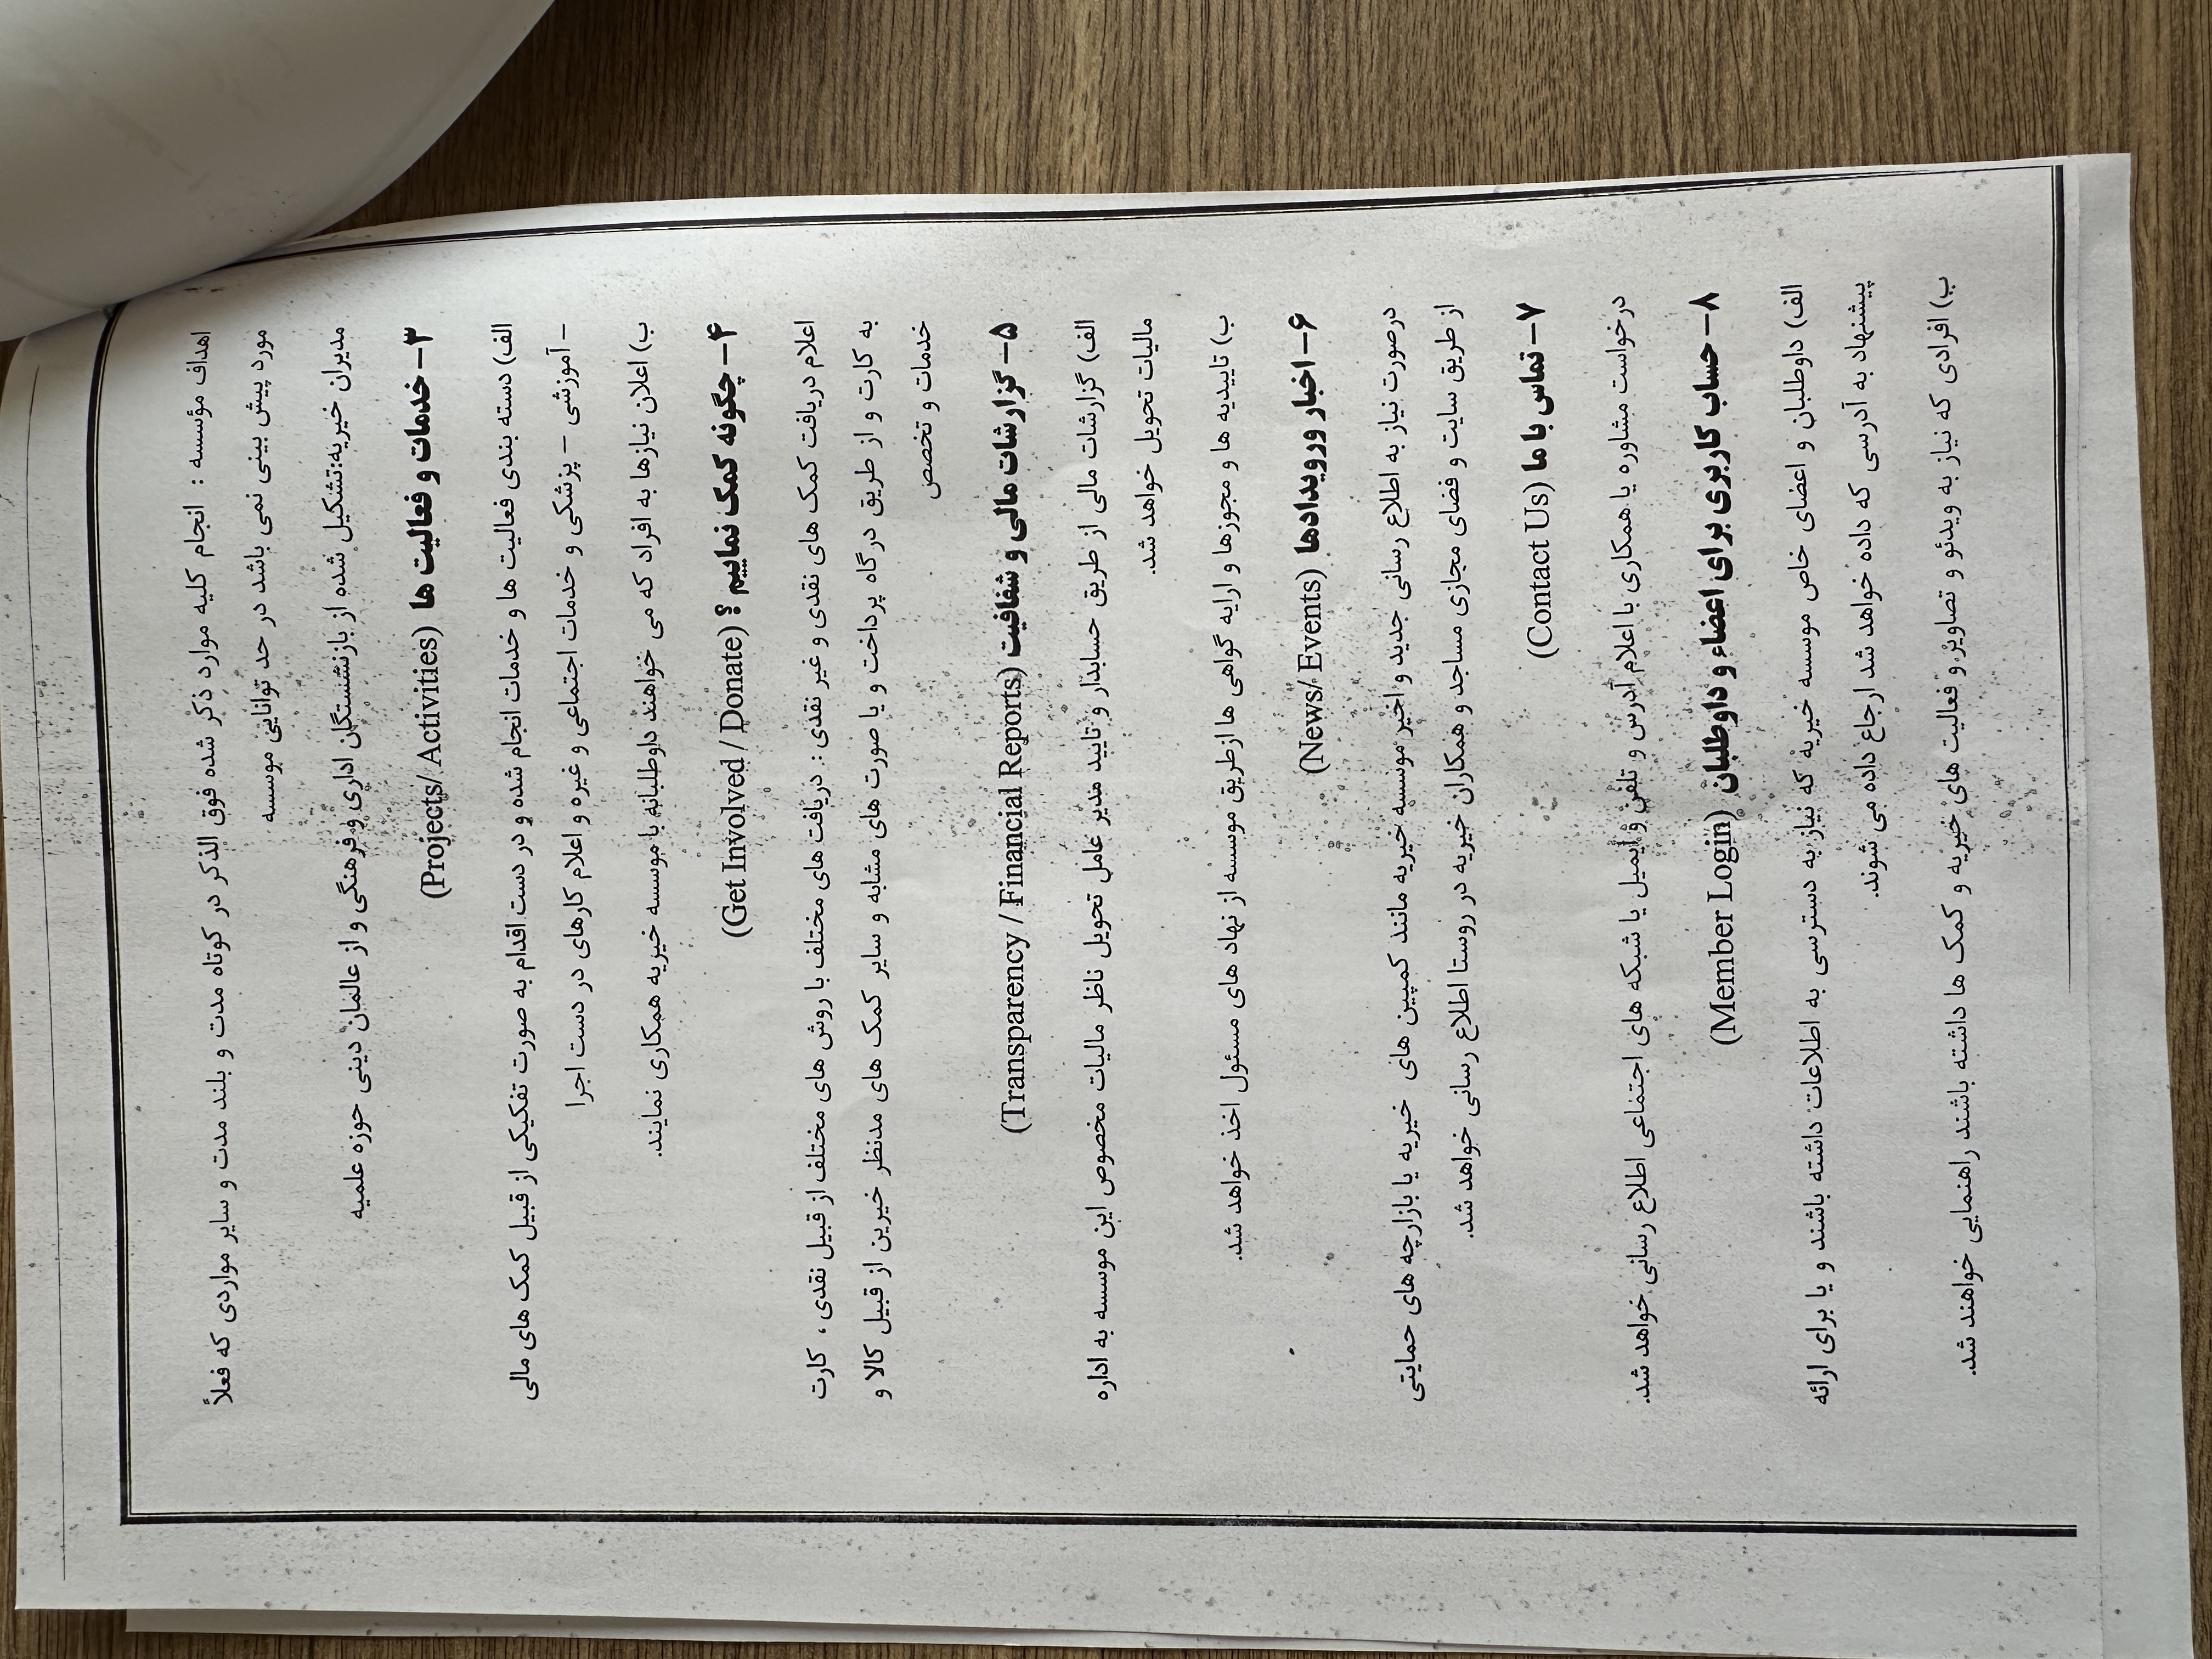 اهداف مؤسسه : انجام کلیه موارد ذکر شده فوق الذکر در کوتاه مدت و بلند مدت و سایر مواردی که فعلاً
مورد پیش بینی نمی باشد در حد توانایی موسسه
مدیران خیریه:تشکیل شده از بازنشستگان اداری و فرهنگی و از عالمان دینی حوزه علمیه
۳– خدمات و فعالیت ها (Projects/ Activities)
الف) دسته بندی فعالیت ها و خدمات انجام شده و در دست اقدام به صورت تفکیکی از قبیل کمک های مالی
– آموزشی – پزشکی و خدمات اجتماعی و غیره و اعلام کارهای در دست اجرا
ب) اعلان نیازها به افراد که می خواهند داوطلبانه با موسسه خیریه همکاری نمایند.
۴– چگونه کمک نماییم ؟ (Get Involved / Donate)
اعلام دریافت کمک های نقدی و غیر نقدی : دریافت های مختلف با روش های مختلف از قبیل نقدی ، کارت
به کارت و از طریق درگاه پرداخت و یا صورت های مشابه و سایر کمک های مدنظر خیرین از قبیل کالا و
خدمات و تخصص
۵– گزارشات مالی و شفافیت (Transparency / Financial Reports)
الف) گزارشات مالی از طریق حسابدار و تایید مدیر عامل تحویل ناظر مالیات مخصوص این موسسه به اداره
مالیات تحویل خواهد شد.
ب) تاییدیه ها و مجوزها و ارایه گواهی ها ازطریق موسسه از نهاد های مسئول اخذ خواهد شد.
۶– اخبار ورویدادها (News/ Events)
درصورت نیاز به اطلاع رسانی جدید و اخیر موسسه خیریه مانند کمپین های خیریه یا بازارچه های حمایتی
از طریق سایت و فضای مجازی مساجد و همکاران خیریه در روستا اطلاع رسانی خواهد شد.
۷– تماس با ما (Contact Us)
درخواست مشاوره یا همکاری با اعلام آدرس و تلفن و ایمیل یا شبکه های اجتماعی اطلاع رسانی خواهد شد.
۸– حساب کاربری برای اعضاء و داوطلبان (Member Login)
الف) داوطلبان و اعضای خاص موسسه خیریه که نیاز به دسترسی به اطلاعات داشته باشند و یا برای ارائه
پیشنهاد به آدرسی که داده خواهد شد ارجاع داده می شوند.
ب) افرادی که نیاز به ویدئو و تصاویر و فعالیت های خیریه و کمک ها داشته باشند راهنمایی خواهند شد.